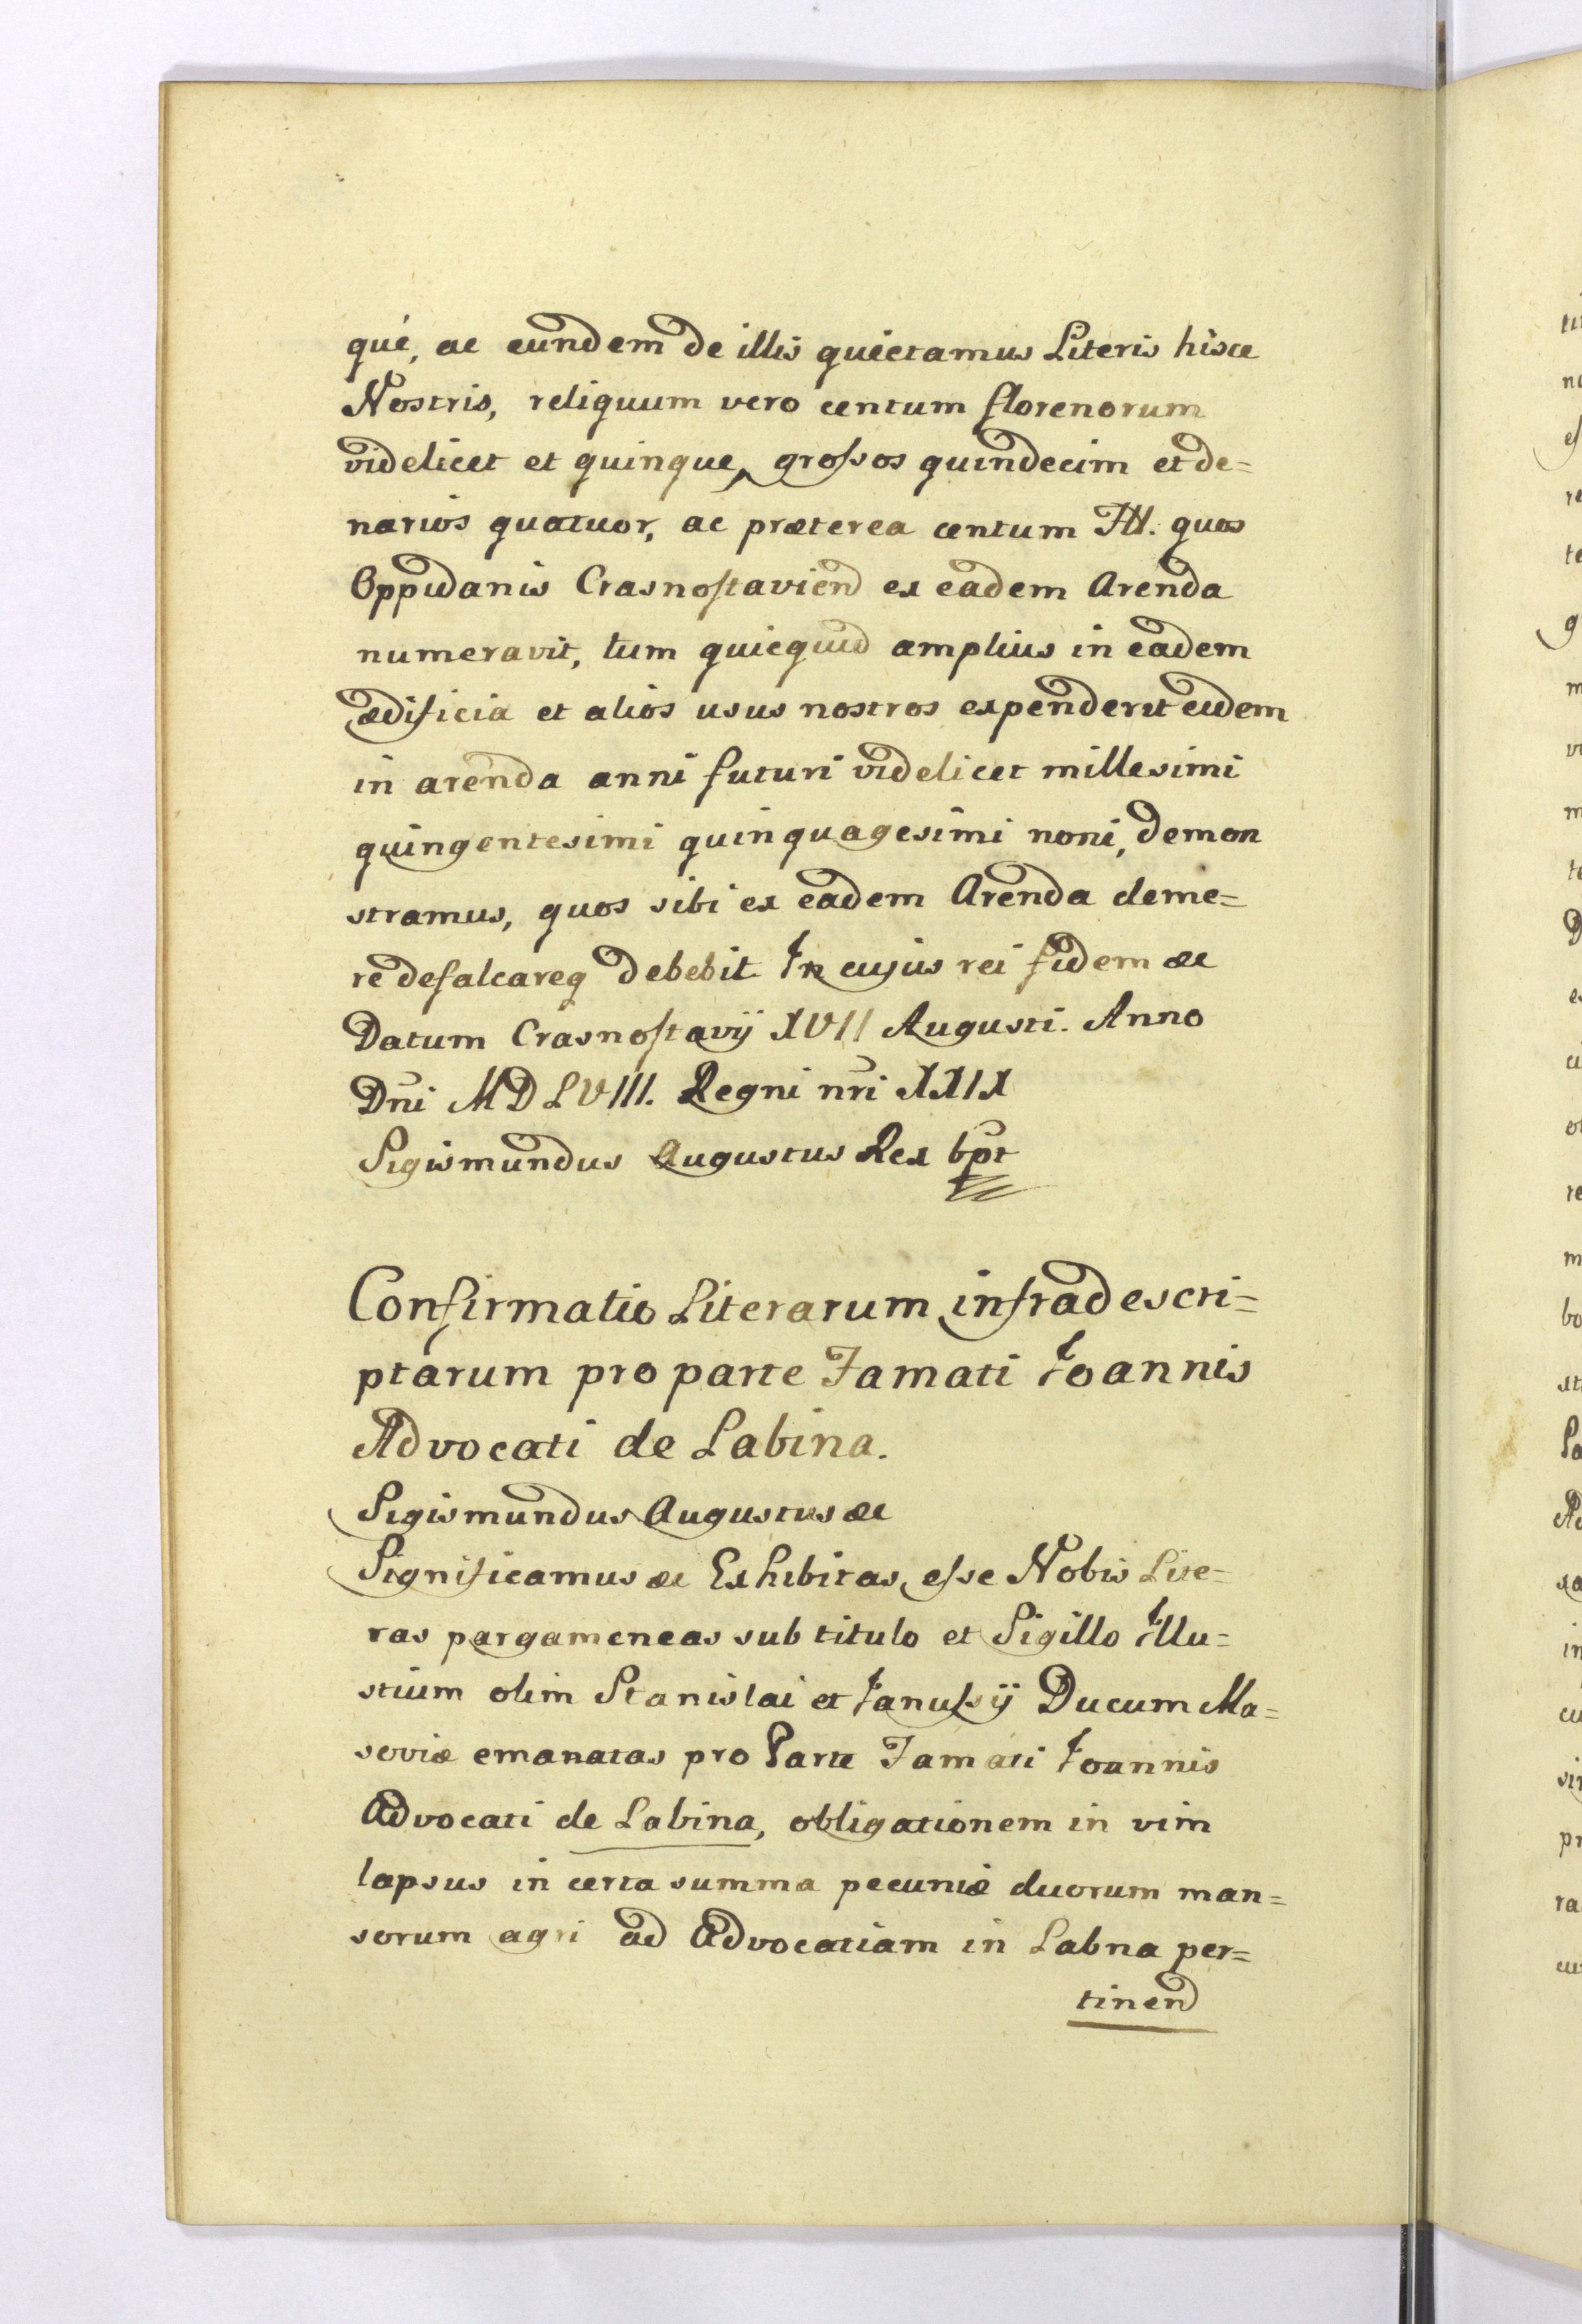 qué, ac eundem de illis quietamus Literis hisce
Nostris, reliquum vero centum florenorum
videlicet et quinque, grossos quindecim et de=
narios quatuor, ac præterea centum Fll. quos
Oppidanis Crasnostaviend ex eadem Arenda
numeravit, tum quicquid amplius in eadem
ædificia et alios usus nostros expenderit eidem
in arenda anni futuri videlicet millesimi
quingentesimi quinquagesimi noni, demon
stramus, quos sibi ex eadem Arenda deme=
re defalcareq debebit In cujus rei fidem &c
Datum Crasnostavij XVII Augusti. Anno
Dni MDLVIII. Regni nri XXIX
Sigismundus Augustus Rex bpt
Confirmatio Literarum infradescri=
ptarum pro parte Famati Joannis
Advocati de Labina.
Sigismundus Augustus &c
Significamus &c Exhibitas esse Nobis Lite=
ras pargameneas sub titulo et Sigillo Illu=
strium olim Stanislai et Janussij Ducum Ma=
soviæ emanatas pro Parte Famati Joannis
Advocati de Labina, obligationem in vim
lapsus in certa summa pecuniæ duorum man=
sorum agri ad Advocatiam in Labna per=
tinend